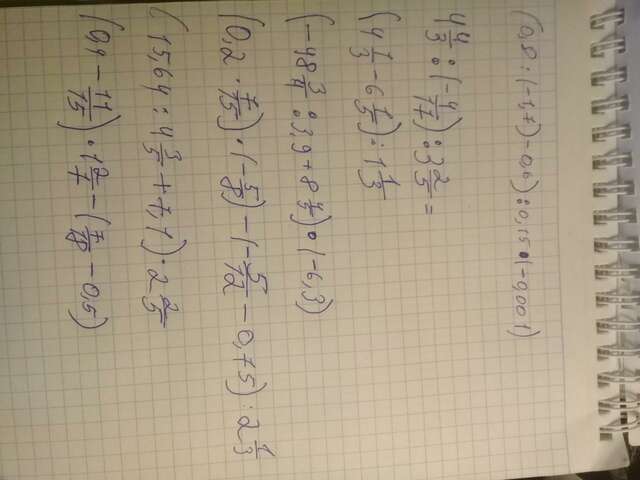 (0,8:(-1,7)-0,6):0,15•(-0,001)
4 4/3 : (-4/17) : 3 2/5 =
(4 1/3 - 6 1/5) : 1 1/3
(-48 3/4 : 3,9 + 8 4/3) • (-6,3)
(0,2 • 7/15) • (-5/8) - (-5/12 - 0,75) : 2 1/3
(15,64 : 4 3/5 + 7,1) • 2 2/5
(0,4 - 11/15) • 1 2/7 - (7/18 - 0,5)